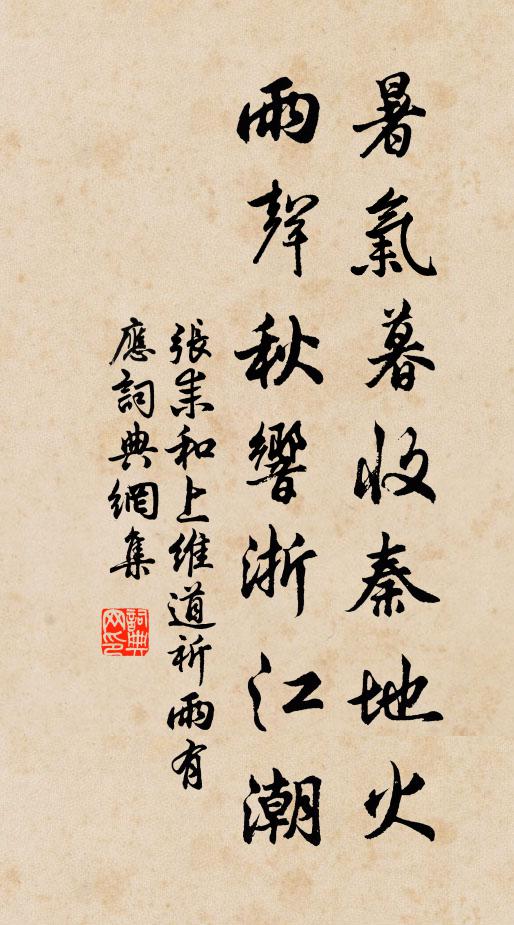 暑氣暮收秦地火
雨聲秋響浙江潮
張耒和上維道祈雨有
應詞典網集
詞典網印